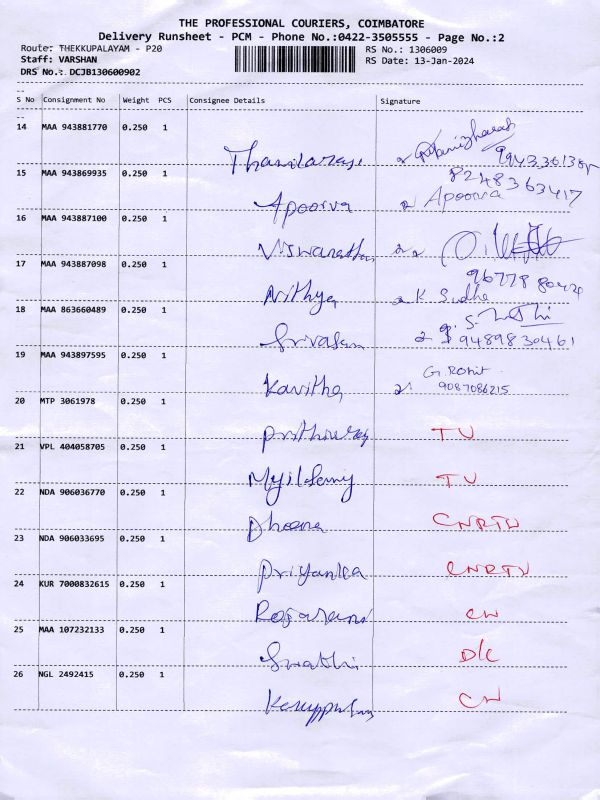 THE PROFESSIONAL COURIERS, COIMBATORE
Delivery Runsheet - PCM - Phone No.:0422-3505555 - Page No.:2
Route: THEKKUPALAYAM - P20 RS No.: 1306009
Staff: VARSHAN RS Date: 13-Jan-2024
DRS No.: DCJB130600902
S No Consignment No Weight PCS Consignee Details Signature
14 MAA 943881770 0.250 1
Thandarasu
15 MAA 943869935 0.250 1 8248363417
Apoorva Apoorva
16 MAA 943887100 0.250 1
Viswanathan
17 MAA 943887098 0.250 1
Nithya K Sudha
18 MAA 863660489 0.250 1
Srivasan 9489830461
19 MAA 943897595 0.250 1 G. Rohit
Kavitha 9087086215
20 MTP 3061978 0.250 1
Prithiviraj TU
21 VPL 404058705 0.250 1
Myilsamy TU
22 NDA 906036770 0.250 1
Dheena CNRTU
23 NDA 906033695 0.250 1
Priyanka CNRTU
24 KUR 7000832615 0.250 1
Rajarani CW
25 MAA 107232133 0.250 1
Swathi D/C
26 NGL 2492415 0.250 1
CW